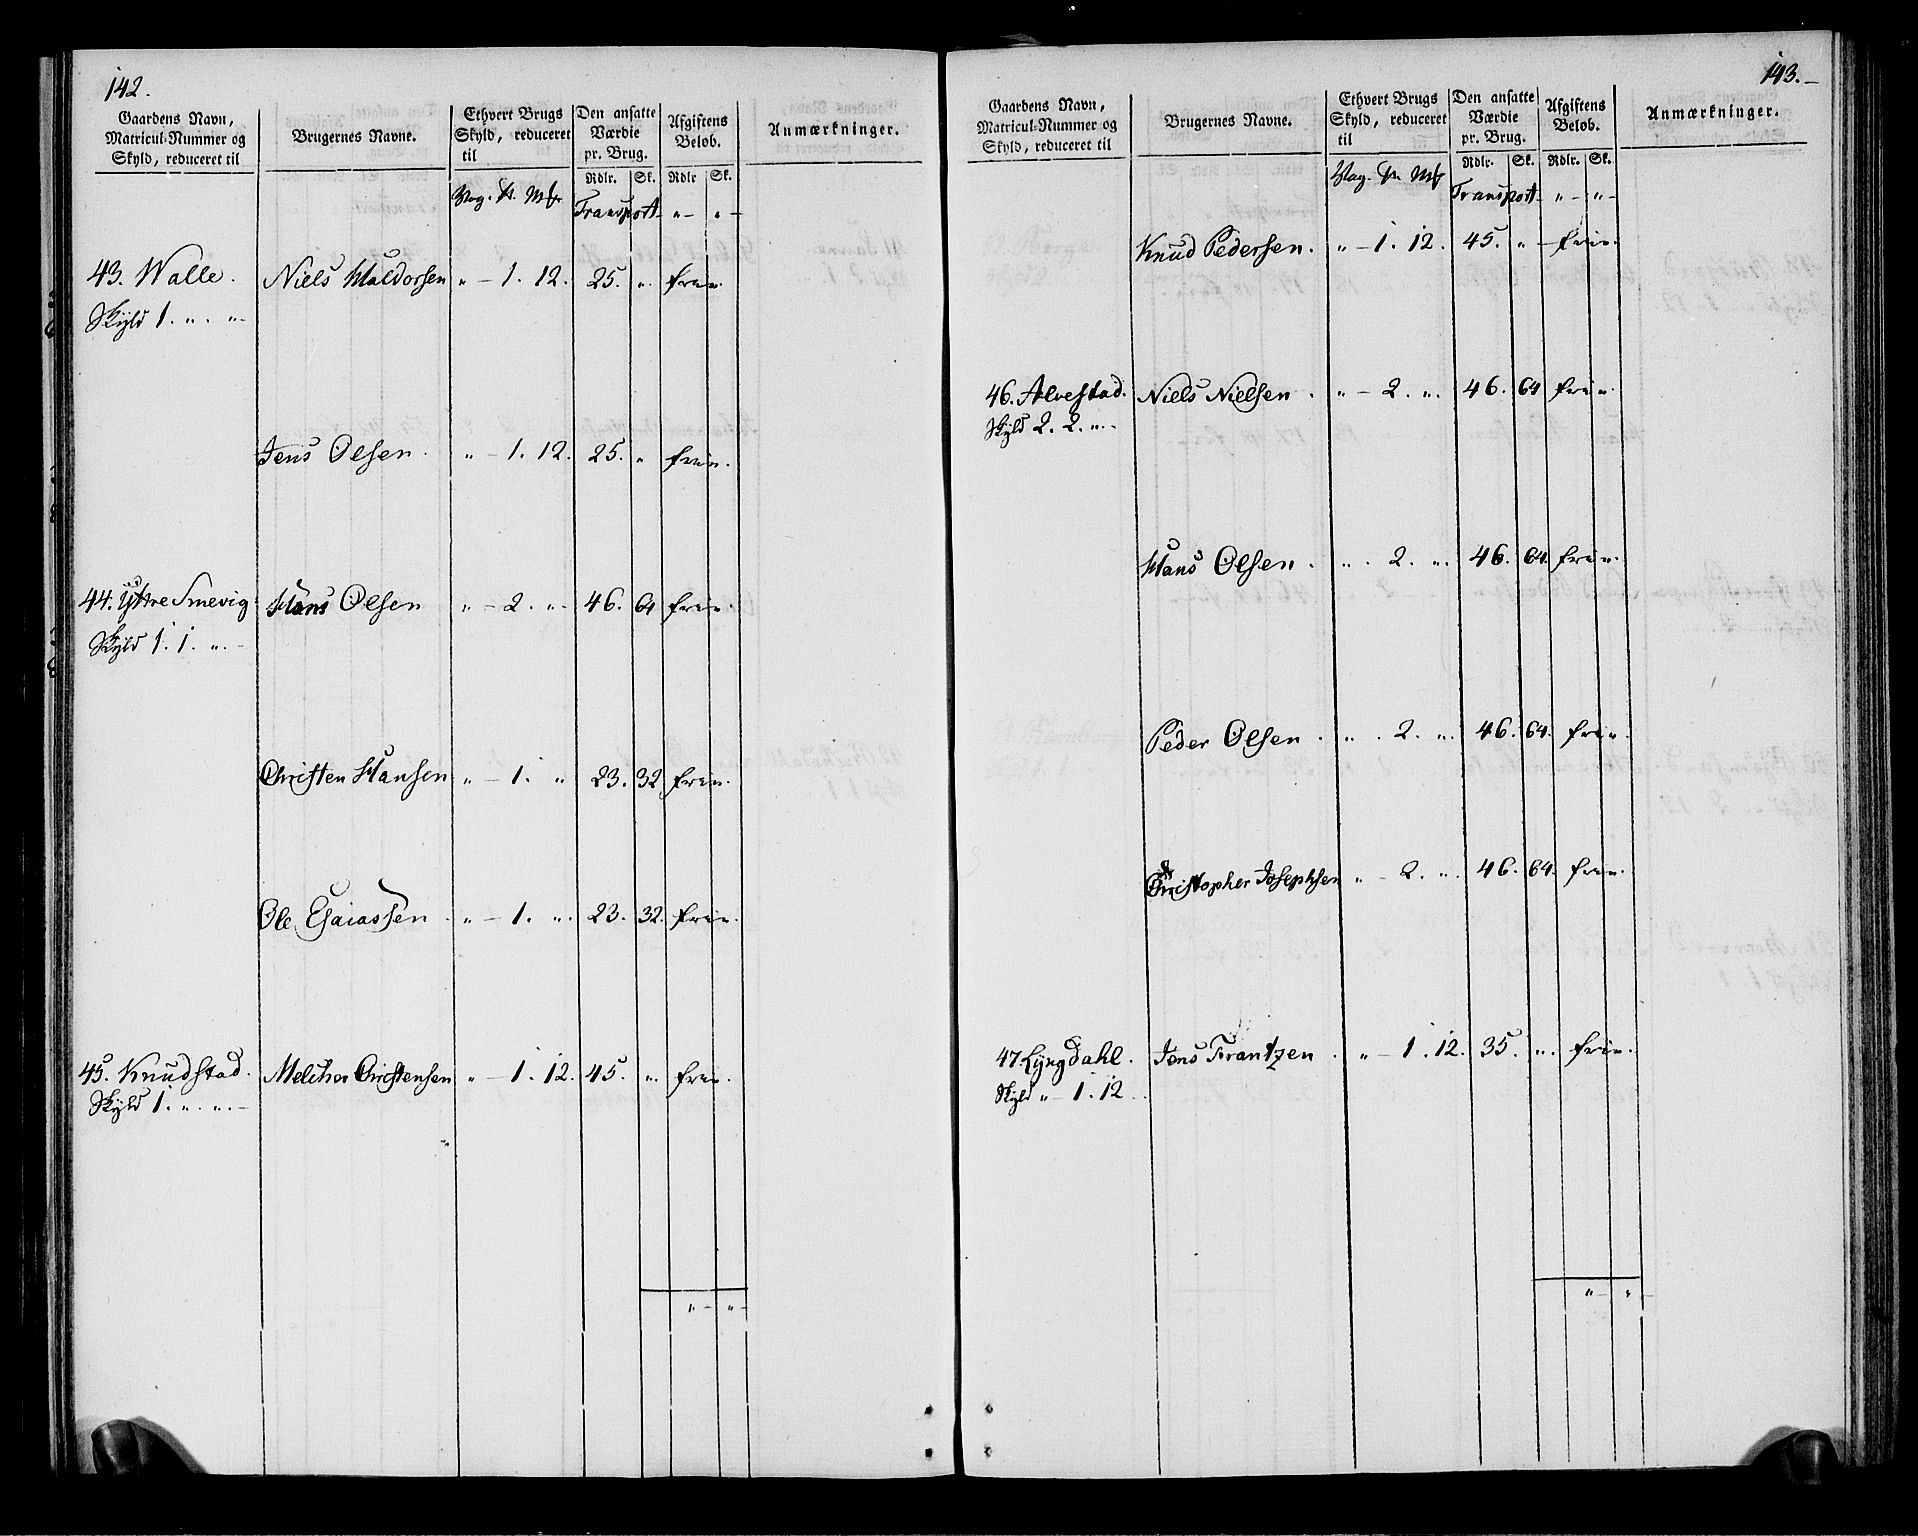 142.
Gaardens Navn, Matricul-Nummer og Skyld, reduceret til
Brugernes Navne.
Ethvert Brugs Skyld, reduceret til
Den ansatte Værdie pr. Brug.
Afgiftens Beløb.
Anmærkninger.
Rdlr. Sk. Rdlr Sk.
Vog. Mk Transport „ – „ –
43. Walle. Niels Haldorsen „ – 1. 12. 25. „ frie.
Skyld 1. „. „ –
Jens Olsen. „ – 1. 12. 25. „ frie.
44. Yttre Smevig Hans Olsen „ – 2. „ – 46. 64 frie.
Skyld 1. 1. „. –
Christen Hansen „ – 1. „ 23. 32 frie.
Ole Esaiassen „ – 1. „. 23. 32. frie.
45. Knudstad. Melchor Christensen „ – 1. 12. 45. „. frie.
Skyld 1. „. „. –
„ – „ –
143. –
Gaardens Navn, Matricul-Nummer og Skyld, reduceret til
Brugernes Navne.
Ethvert Brugs Skyld, reduceret til
Den ansatte Værdie pr. Brug.
Afgiftens Beløb.
Anmærkninger.
Rdlr. Sk. Rdlr. Sk.
Vog. Mk Transport „ – „ –
Knud Pedersen. „ – 1. 12. 45. „ – frie.
46. Alvestad. Niels Nielsen. „ – 2. „. 46. 64 frie.
Skyld 2. 2. „. –
Hans Olsen. „. 2. „. 46. 64. frie.
Peder Olsen. „. 2. „. 46. 64. frie.
Christopher Josephsen „ – 2. „. 46. 64. frie.
47. Lyngdahl. Jens Frantzen. „ – 1. 12. 35. „. frie.
Skyld „ – 1. 12.
„ – „ –